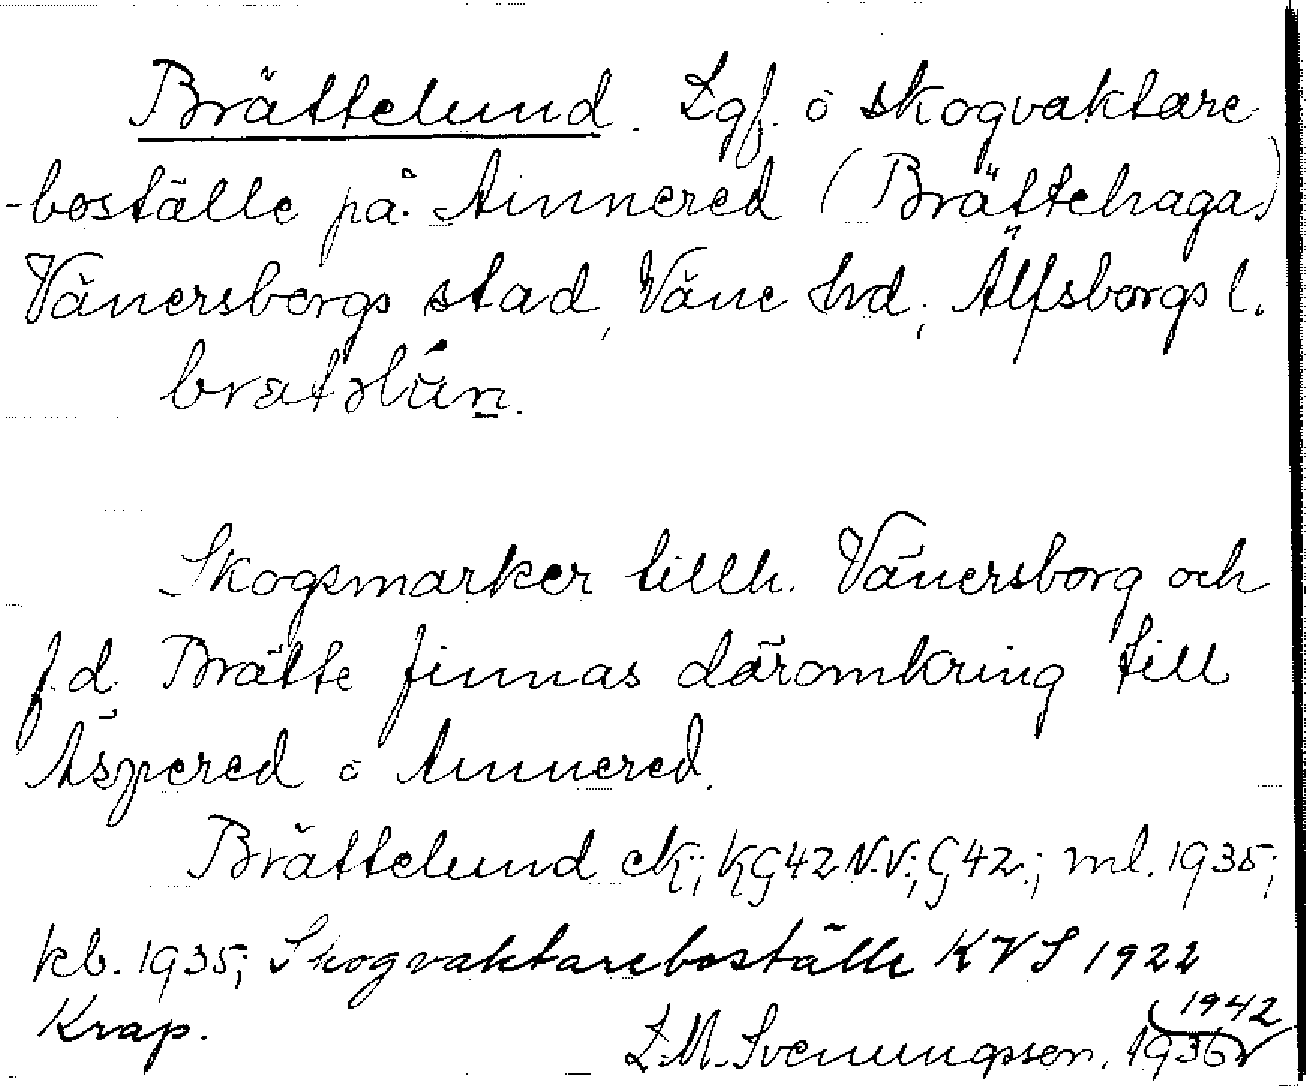 Brättelund. Lgf. o skogvaktare
-boställe på Ainnered (Brättehaga)
Vänersborgs stad, Väne hd, Älfsborgs l.
Skogsmarker tillh. Vänersborg och
f.d. Brätte finnas däromkring till
Äspered o Ainnered.
Brättelund ek; KG42 N.V.; G42.; ml. 1935;
kb. 1935; Skogvaktareboställe KVS 1922
Krap.
1942
Z.M. Svenungsson, 1936